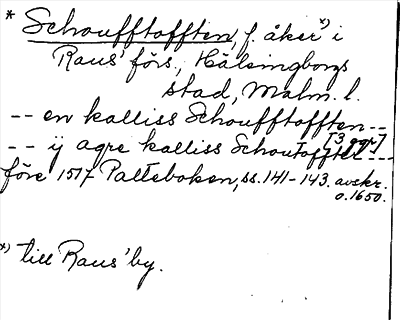 * Schoufftofften, f. åker *) i
Raus' förs, Hälsingborgs
stad, Malm. l.
-- en kalliss Schoufftofften --
[3 ggr]
-- ij agre kalliss Schoutoffter --
före 1517 Palteboken, ss. 141-143. avskr.
o. 1650.
*) till Raus' by.